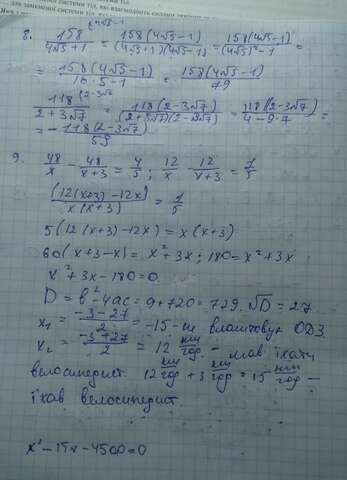 для замкненої системи тіл, які взаємодіють
8. 158/(4√5+1) = 158(4√5-1)/((4√5+1)(4√5-1)) = 158(4√5-1)/((4√5)²-1) =
= 158(4√5-1)/(16·5-1) = 158(4√5-1)/79
118/(2+3√7) = 118(2-3√7)/((2+3√7)(2-3√7)) = 118(2-3√7)/(4-9·7) =
= - 118(2-3√7)/59
9. 48/x - 48/(x+3) = 4/5; 12/x - 12/(x+3) = 1/5
(12(x+3)-12x)/(x(x+3)) = 1/5
5(12(x+3)-12x) = x(x+3)
60(x+3-x) = x²+3x; 180=x²+3x
x²+3x-180=0
D = b²-4ac = 9+720=729. √D=27
x₁ = (-3-27)/2 = -15 - не влаштовує ОДЗ.
x₂ = (-3+27)/2 = 12 км/год - мав їхати
велосипедист. 12 км/год + 3 км/год = 15 км/год -
їхав велосипедист
x²-15x-4500=0